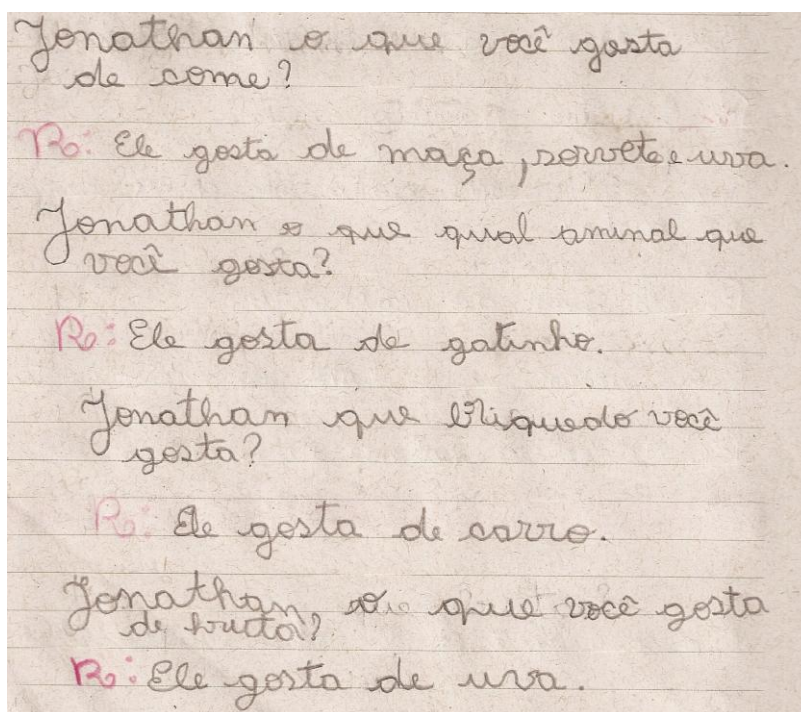 Jonathan o que você gosta
de come?
R: Ele gosta de maça, sorvete e uva.
Jonathan o que qual aminal que
você gosta?
R: Ele gosta de gatinho.
Jonathan que briquedo você
gosta?
R: Ele gosta de carro.
Jonathan o que você gosta
de fructa?
R: Ele gosta de uva.